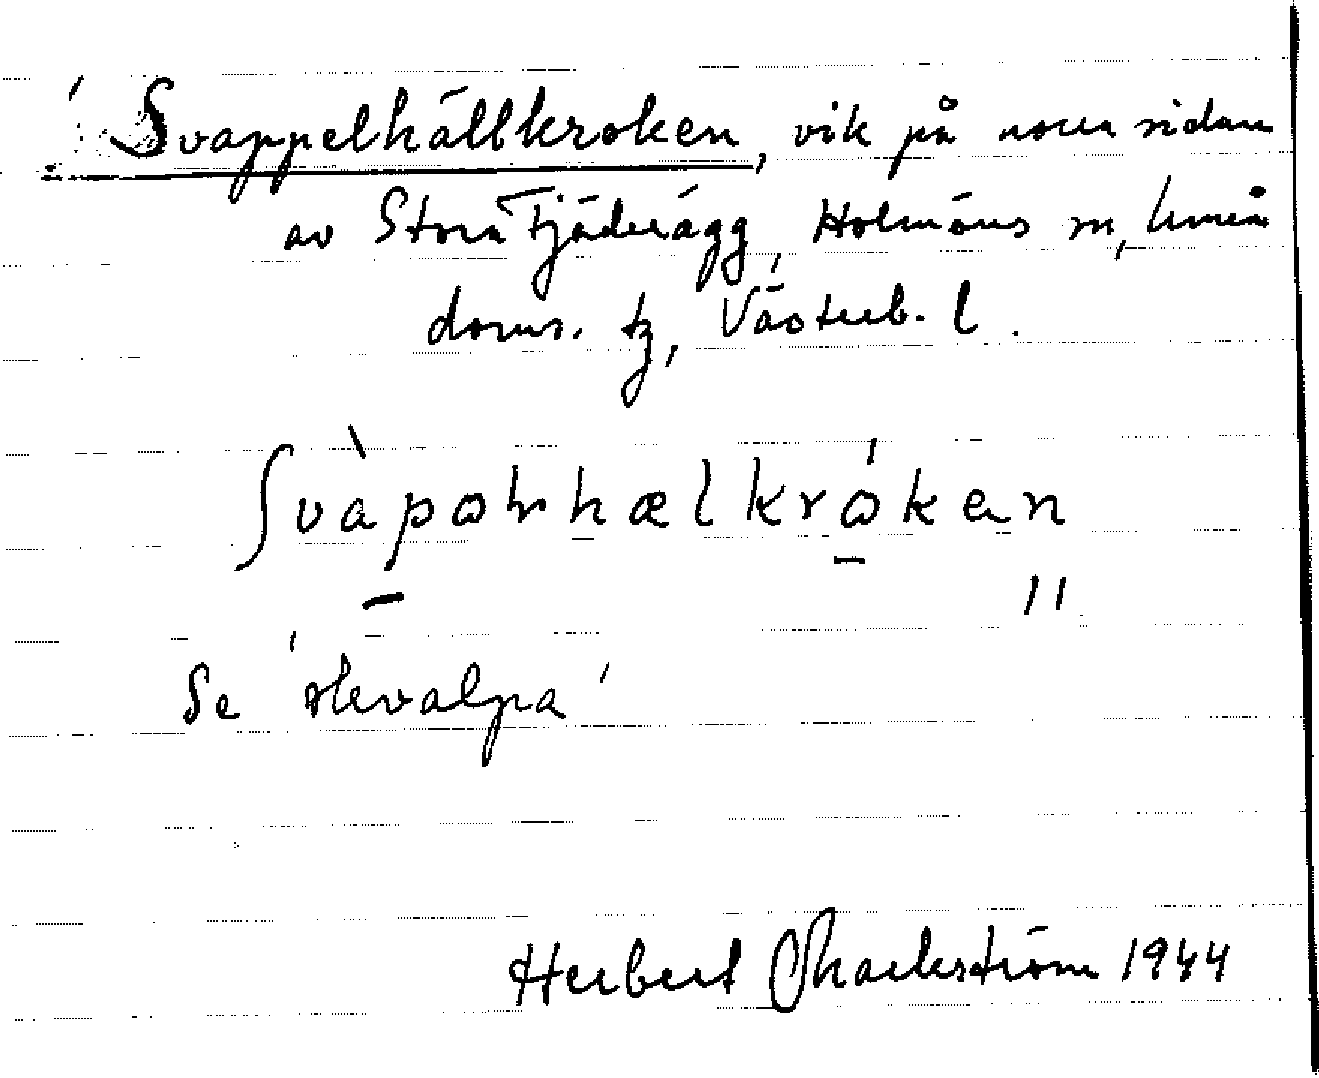 'Svappelhällkroken, vik på norra sidan
av Stora Fjäderägg, Holmöns sn, Umeå
doms. tg, Västerb. l.
ʃvàpo hælkróken
Se 'skvalpa'
Herbert 1944